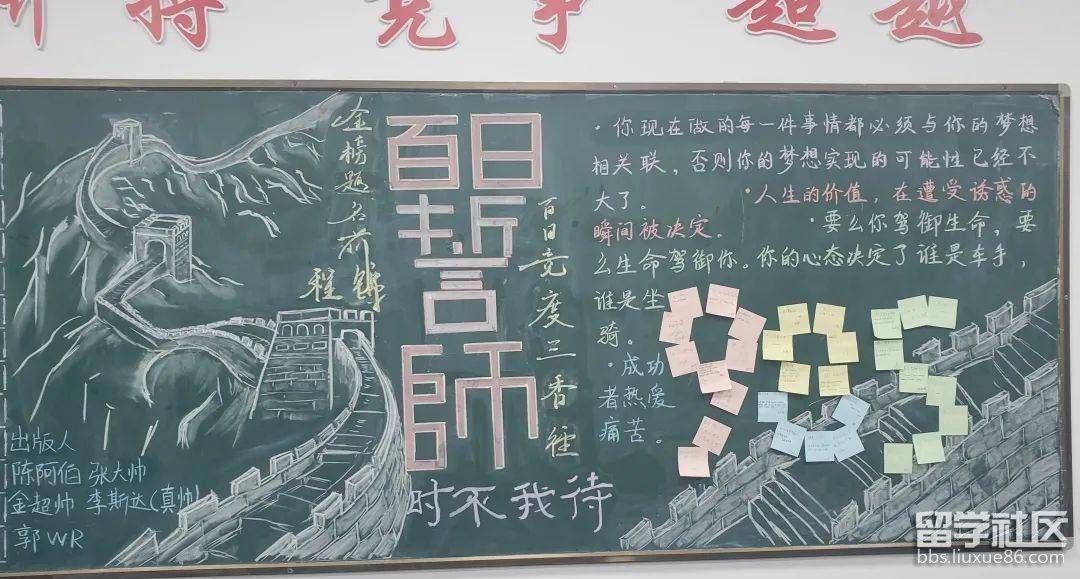 搏 竞争 超越
金榜题名前
程锦
百日
誓
師
百日竞度 香往
时不我待
·你现在做的每一件事情都必须与你的梦想
相关联，否则你的梦想实现的可能性已经不
大了。 ·人生的价值，在遭受诱惑的
瞬间被决定。 ·要么你驾御生命，要
么生命驾御你。你的心态决定了谁是车手，
谁是坐
骑。
·成功
者热爱
痛苦。
985
出版人
陈阿伯 张大帅
金超帅 李斯达(真帅)
郭WR
留学社区
bbs.liuxue86.com